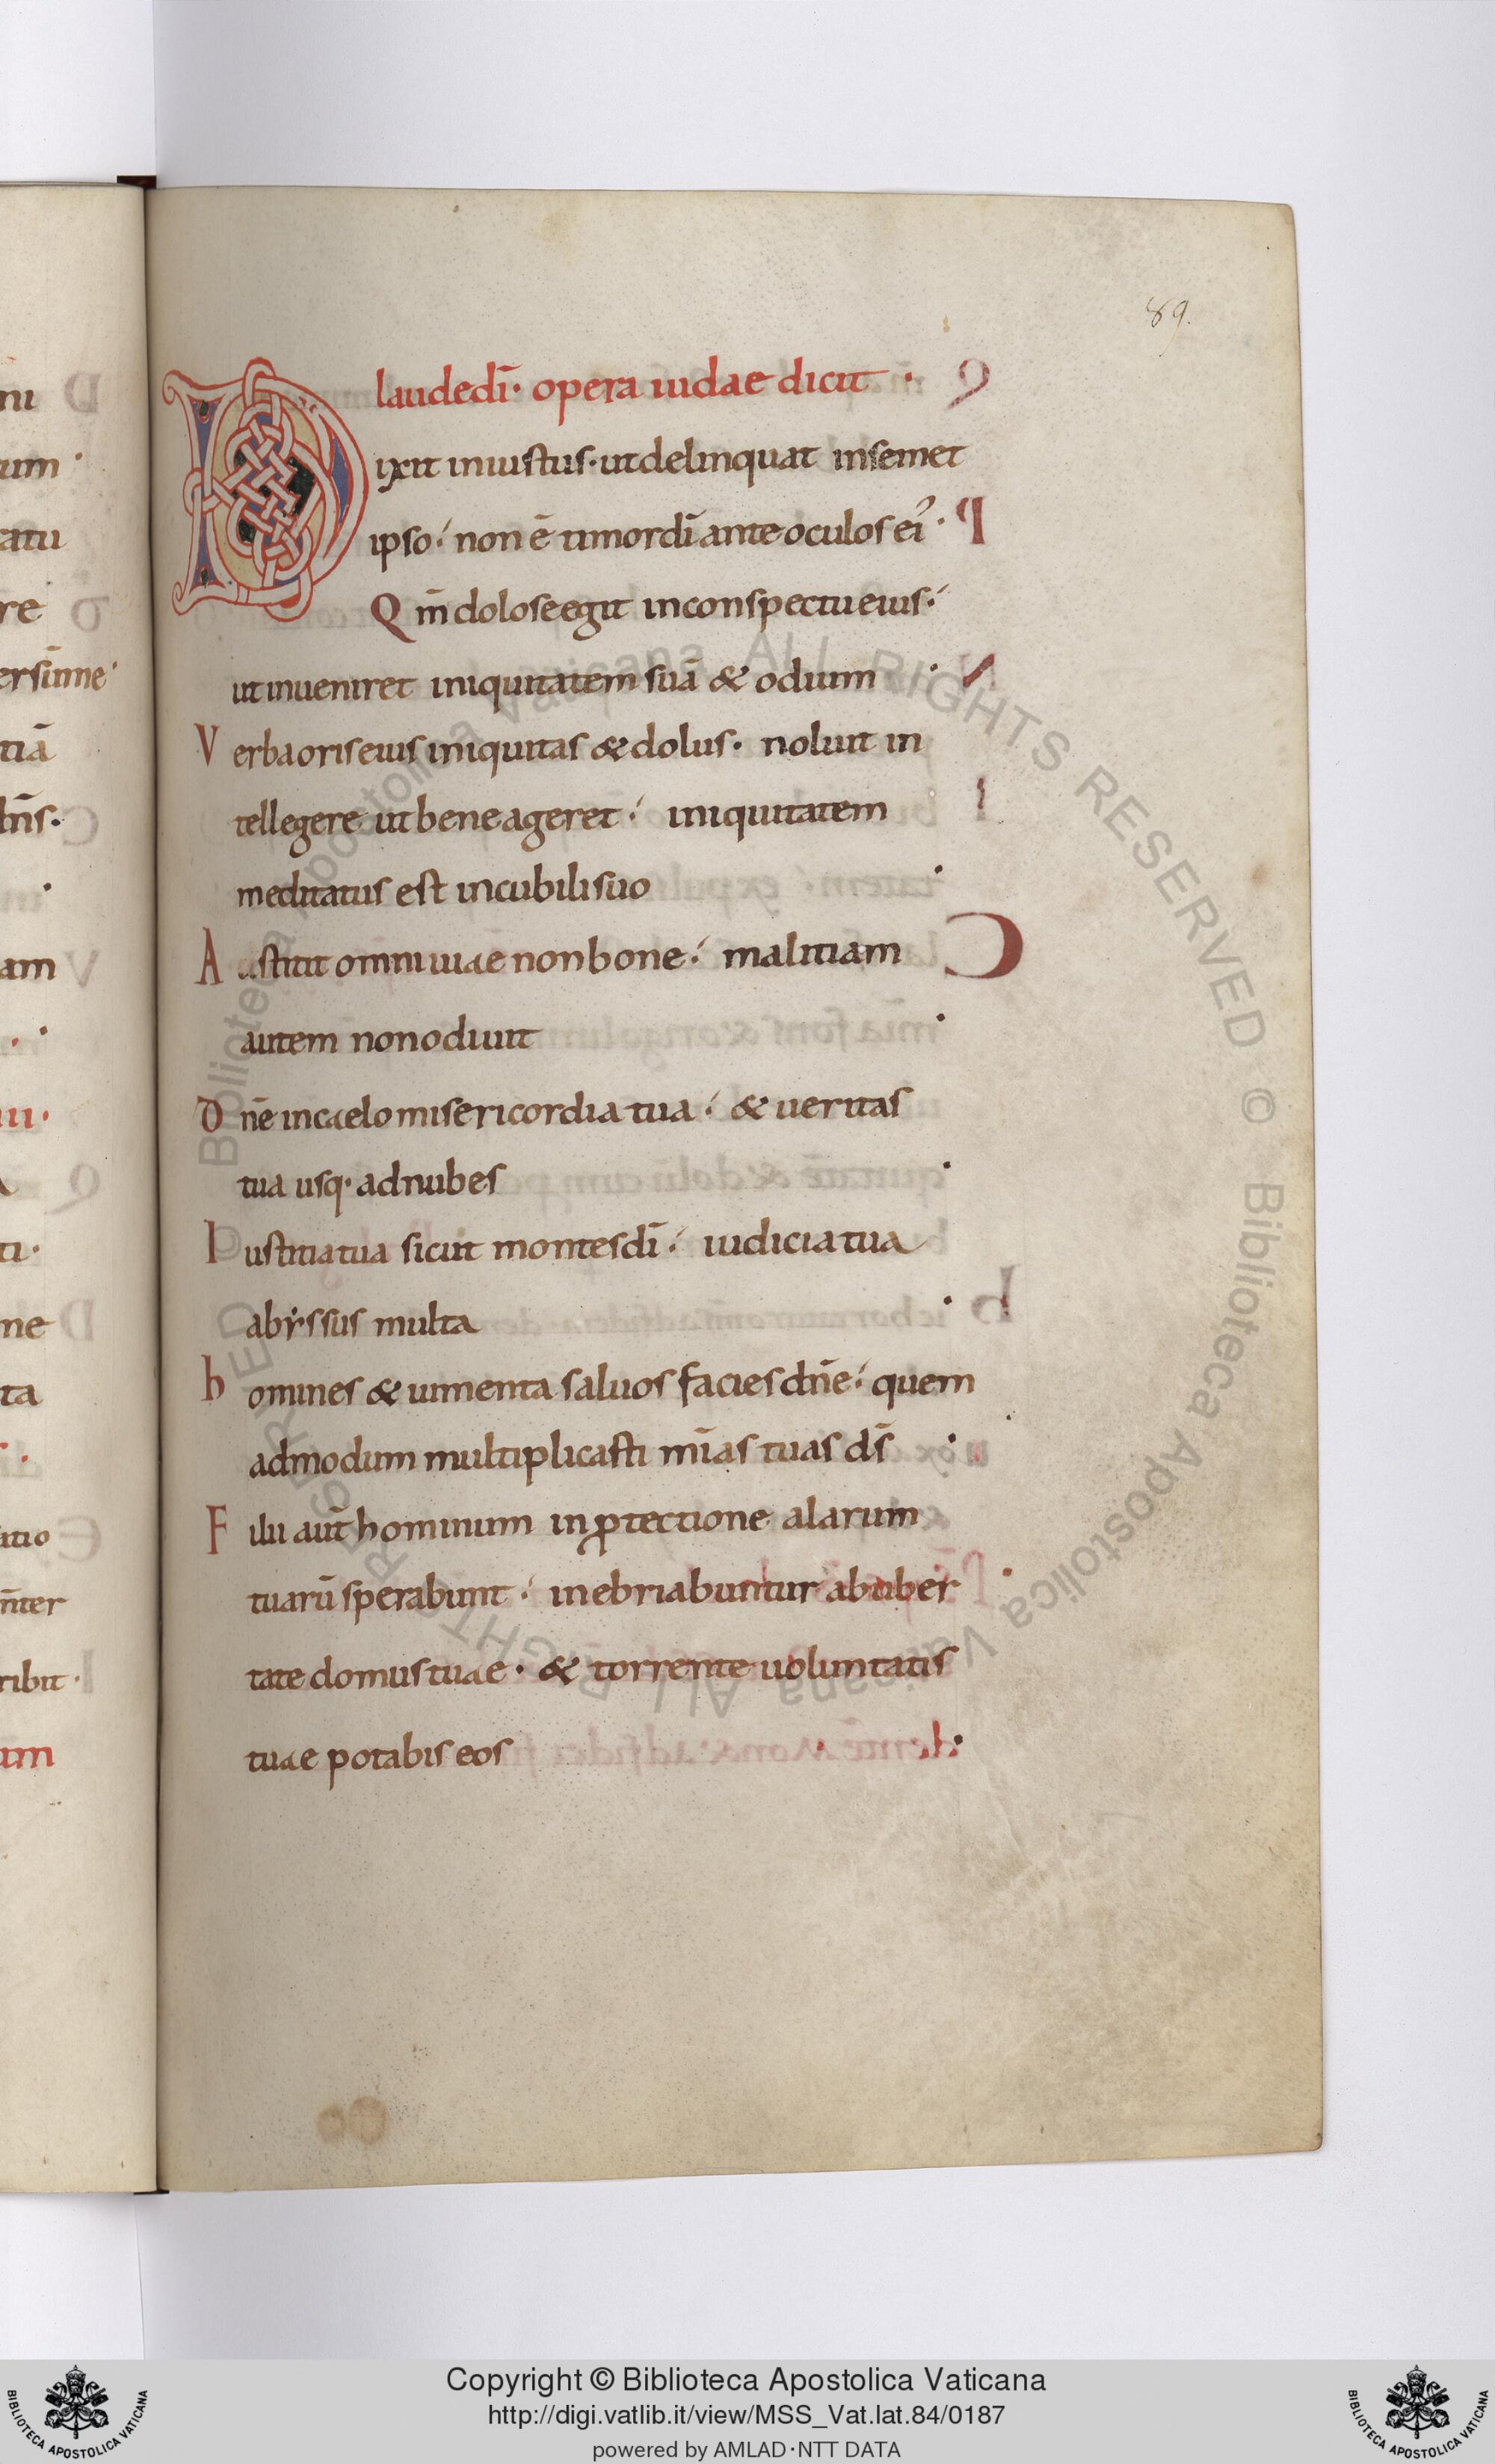 ni
um
atu
re
ersūme
tiā
am
ti.
ne
ta
atio
ribit.
um
89.
laude dī. opera iudae dicit .
Dixit iniustus. ut delinquat in semet
ipso: non ē timor dī ante oculos ei᾽.
Qm̄ dolose egit in conspectu eius:
ut inueniret iniquitatem suā & odium
Verba oris eius iniquitas & dolus. noluit in
tellegere ut bene ageret: iniquitatem
meditatus est in cubili suo
Astitit omni uiae non bone: malitiam
autem non odiuit
Dnē in caelo misericordia tua: & ueritas
tua usq. ad nubes
Iustitia tua sicut montes dī: iudicia tua
abyssus multa
homines & iumenta saluos facies dnē: quem
admodum multiplicasti mīas tuas ds̄
Filii aut̄ hominum in ꝓtectione alarum
tuarū sperabunt: inebriabuntur ab uber
tate domus tuae. & torrente uoluntatis
tuae potabis eos
Biblioteca Apostolica Vaticana ALL RIGHTS RESERVED © Biblioteca Apostolica Vaticana ALL RIGHTS RESERVED ©
Copyright © Biblioteca Apostolica Vaticana
http://digi.vatlib.it/view/MSS_Vat.lat.84/0187
powered by AMLAD·NTT DATA
BIBLIOTECA APOSTOLICA VATICANA
BIBLIOTECA APOSTOLICA VATICANA